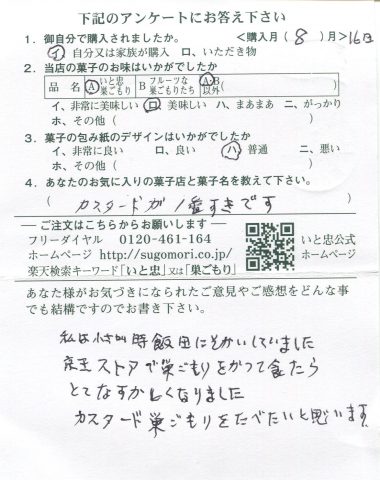 下記のアンケートにお答え下さい
1. 御自分で購入されましたか。 <購入月(8)月>16日
イ、自分又は家族が購入 ロ、いただき物
2. 当店の菓子のお味はいかがでしたか
品 名 A いと忠巣ごもり B フルーツな巣ごもりたち A・B以外( )
イ、非常に美味しい ロ、美味しい ハ、まあまあ ニ、がっかり
ホ、その他( )
3. 菓子の包み紙のデザインはいかがでしたか
イ、非常に良い ロ、良い ハ、普通 ニ、悪い
ホ、その他( )
4. あなたのお気に入りの菓子店と菓子名を教えて下さい。
( カスタードが1番すきです )
ご注文はこちらからお願いします
フリーダイヤル 0120-461-164
ホームページ http://sugomori.co.jp/
楽天検索キーワード「いと忠」又は「巣ごもり」
いと忠公式
ホームページ
あなた様がお気づきになられたご意見やご感想をどんな事
でも結構ですのでお書き下さい。
私は小さい時飯田にそかいしていました
京王ストアで巣ごもりをかって食たら
とてなすかしくなりました
カスタード巣ごもりをたべたいと思います